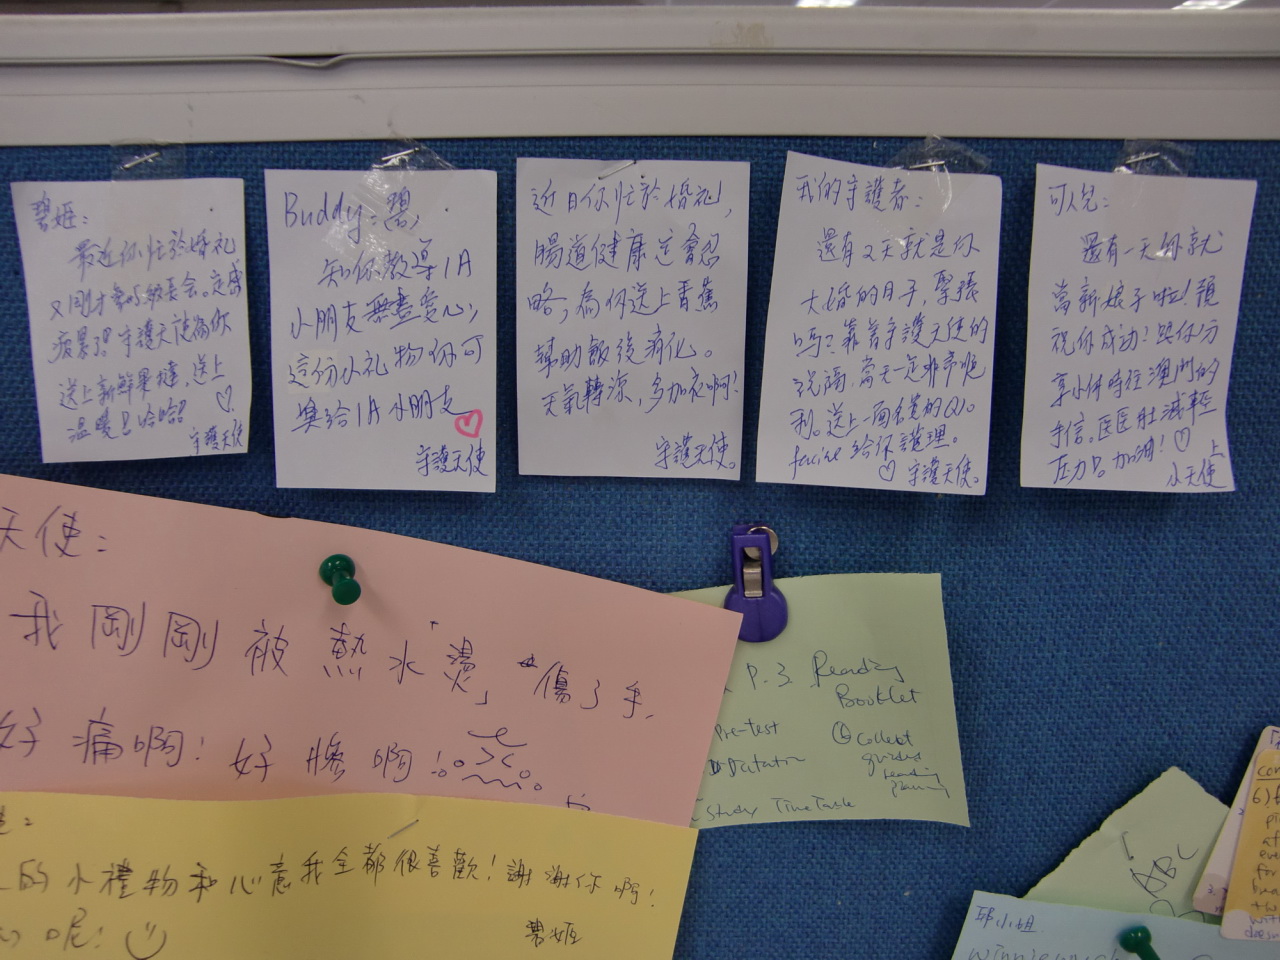 碧姬：
最近你忙於婚礼
又剛才要吩級長会。定感
疲累了！守護天使為你
送上新鮮果撻，送上
溫暖！哈哈！ ♡
守護天使
Buddy-碧，
知你教導1A
小朋友無盡愛心，
這份小礼物你可
奧給1A小朋友
守護天使
近日你忙於婚礼，
腸道健康定會忽
略，為你送上香蕉
幫助飯後消化。
天氣轉涼，多加衣啊！
守護天使。
我的守護者：
還有2天就是你
大婚的日子，緊張
嗎？靠着守護天使的
祝福，當天一定非常順
利。送上一面膜的
facial給你護理。
♡ 守護天使。
可人兒：
還有一天你就
當新娘子啦！預
祝你成功！跟你分
享小休時往澳門的
手信。醫醫肚減輕
壓力。加油！♡ 上
小天使
天使：
我剛剛被熱水「燙」傷了手，
好痛啊！好慘啊！
P.3 Reading
Booklet
Pre-test
Dictation
Collect
guided
reading
planning
Study TimeTable
的小禮物和心意我全都很喜歡！謝謝你啊！
呢！
碧姬
邱小姐
ABC